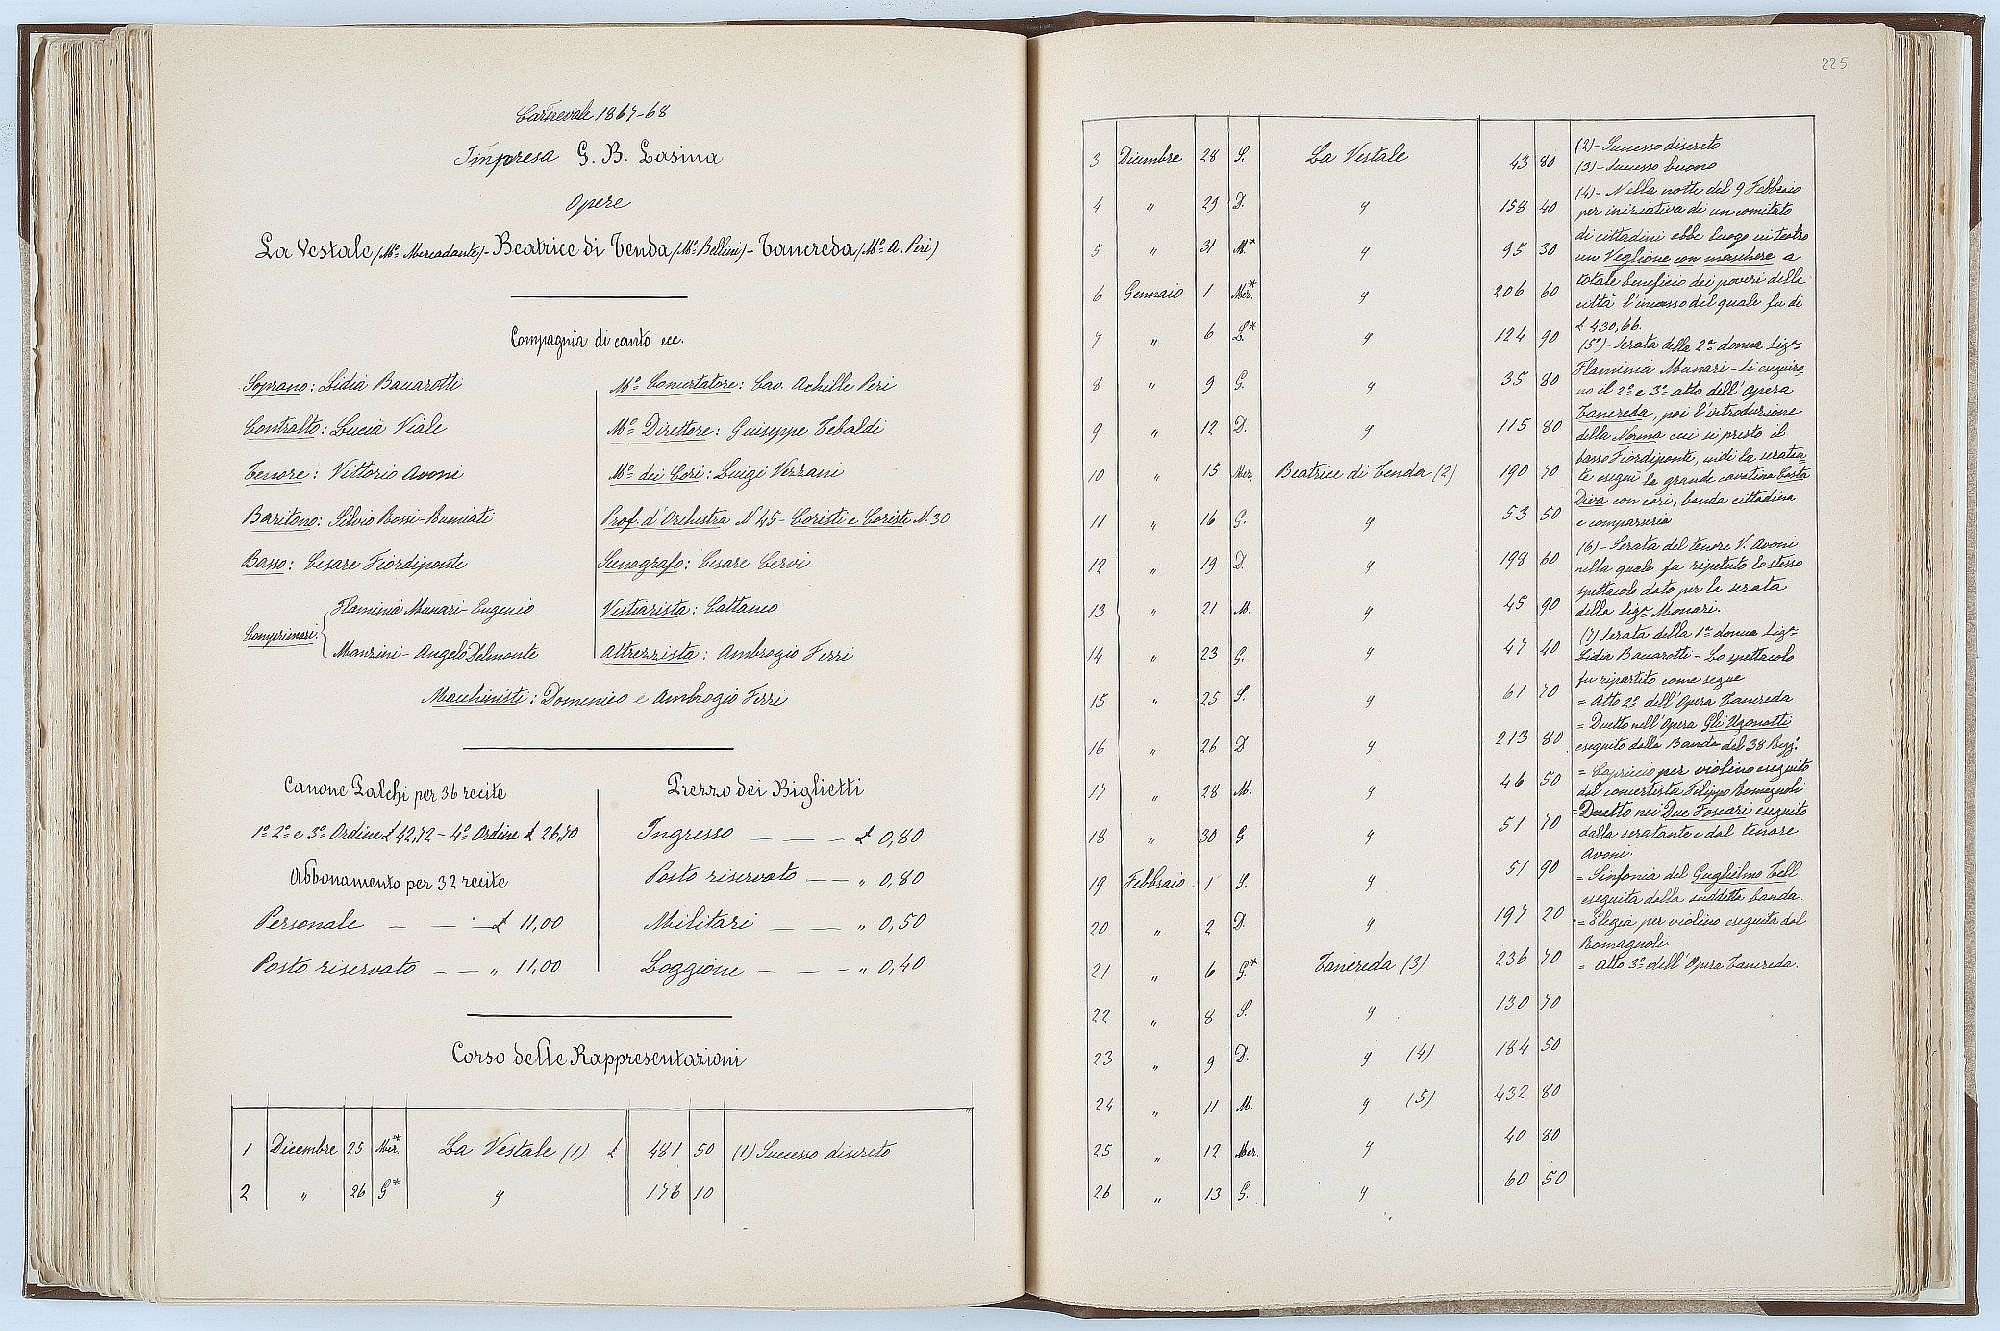 Carnevale 1867-68
Impresa G. B. Lasina
Opere
La Vestale (Mo. Mercadante) - Beatrice di Tenda (Mo. Bellini) - Tancreda (Mo. A. Peri)
Compagnia di canto ecc.
Soprano: Lidia Bauarotti
Contralto: Lucia Viale
Tenore: Vittorio Avoni
Baritono: Silvio Rossi-Rumiati
Basso: Cesare Fiordiponte
Comprimari: Flaminia Munari - Eugenio
Manzini - Angelo Delmonte
Mo. Concertatore: Cav. Achille Peri
Mo. Direttore: Guiseppe Tebaldi
Mo. dei Cori: Luigi Vezzani
Prof. d'Orchestra N. 45 - Coristi e Coriste N. 30
Scenografo: Cesare Cervi
Vestiarista: Cattaneo
Attrezzista: Ambrogio Ferri
Macchinisti: Domenico e Ambrogio Ferri
Canone Palchi per 36 recite
1o 2o e 3o Ordine £ 42,72 - 4o Ordine £ 26,70
Abbonamento per 32 recite
Personale — — — £ 11,00
Posto riservato — — " 11,00
Prezzo dei Biglietti
Ingresso — — — £ 0,80
Posto riservato — — " 0,80
Militari — — — " 0,50
Loggione — — — " 0,40
Corso delle Rappresentazioni
1 Dicembre 25 Mer.* La Vestale (1) £ 481 50 (1) Successo discreto
2 " 26 G* " 176 10
225
3 Dicembre 28 S. La Vestale 43 80
4 " 29 D. " 158 40
5 " 31 M.* " 95 30
6 Gennaio 1 Mer.* " 206 60
7 " 6 L.* " 124 90
8 " 9 G. " 35 80
9 " 12 D. " 115 80
10 " 15 Mer. Beatrice di Tenda (2) 190 70
11 " 16 G. " 53 50
12 " 19 D. " 198 60
13 " 21 M. " 45 90
14 " 23 G. " 47 40
15 " 25 S. " 61 70
16 " 26 D " 213 80
17 " 28 M. " 46 50
18 " 30 G " 51 70
19 Febbraio 1 S. " 51 90
20 " 2 D. " 197 20
21 " 6 G* Tancreda (3) 236 70
22 " 8 S. " 130 70
23 " 9 D. " (4) 184 50
24 " 11 M. " (5) 432 80
25 " 12 Mer. " 40 80
26 " 13 G. " 60 50
(2) - Successo discreto
(3) - Successo buono
(4) - Nella notte del 9 Febbraio
per iniziativa di un comitato
di cittadini ebbe luogo in teatro
un Veglione con maschere a
totale beneficio dei poveri della
città l'incasso del quale fu di
£ 430,66.
(5o) - Serata della 2a donna Siga
Flaminia Munari - Si eseguiro-
no il 2o e 3o atto dell'Opera
Tancreda, poi l'introduzione
della Norma cui si prestò il
basso Fiordiponte, indi la seratan
te eseguì la grande cavatina Casta
Diva con cori, banda cittadina
e comparseria
(6) - Serata del tenore V. Avoni
nella quale fu ripetuto lo stesso
spettacolo dato per la serata
della Siga Monari.
(7) Serata della 1a donna Siga
Lidia Bauarotti - Lo spettacolo
fu ripartito come segue
= Atto 2o dell'Opera Tancreda
= Duetto nell'Opera Gli Ugonotti
eseguito dalla Banda del 38 Regg.
= Capriccio per violino eseguito
dal concertista Filippo Romagnoli
= Duetto nei Due Foscari eseguito
dalla seratante e dal tenore
Avoni.
= Sinfonia del Guglielmo Tell
eseguita dalla suddetta banda.
= Elegia per violino eseguita dal
Romagnoli.
= Atto 3o dell'Opera Tancreda.